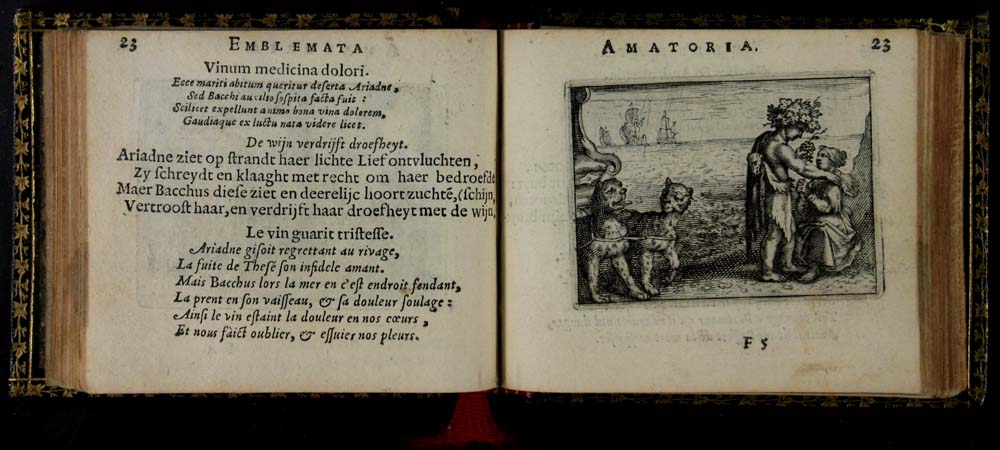 23
EMBLEMATA
Vinum medicina dolori.
Ecce mariti abitum queritur deserta Ariadne,
Sed Bacchi auxilio sospita facta fuit :
Scilicet expellunt animo bona vina dolorem,
Gaudiaque ex luctu nata videre licet.
De wijn verdrijft droefheyt.
Ariadne ziet op strandt haer lichte Lief ontvluchten,
Zy schreydt en klaaght met recht om haer bedroefde
Maer Bacchus diese ziet en deerelijc hoort zuchtē, (schijn,
Vertroost haar, en verdrijft haar droefheyt met de wijn,
Le vin guarit tristesse.
Ariadne gisoit regrettant au rivage,
La fuite de Thesé son infidele amant.
Mais Bacchus lors la mer en c'est endroit fendant,
La prent en son vaisseau, & sa douleur soulage :
Ainsi le vin estaint la douleur en nos cœurs ,
Et nous faict oublier, & essuier nos pleurs.
AMATORIA.
23
F 5